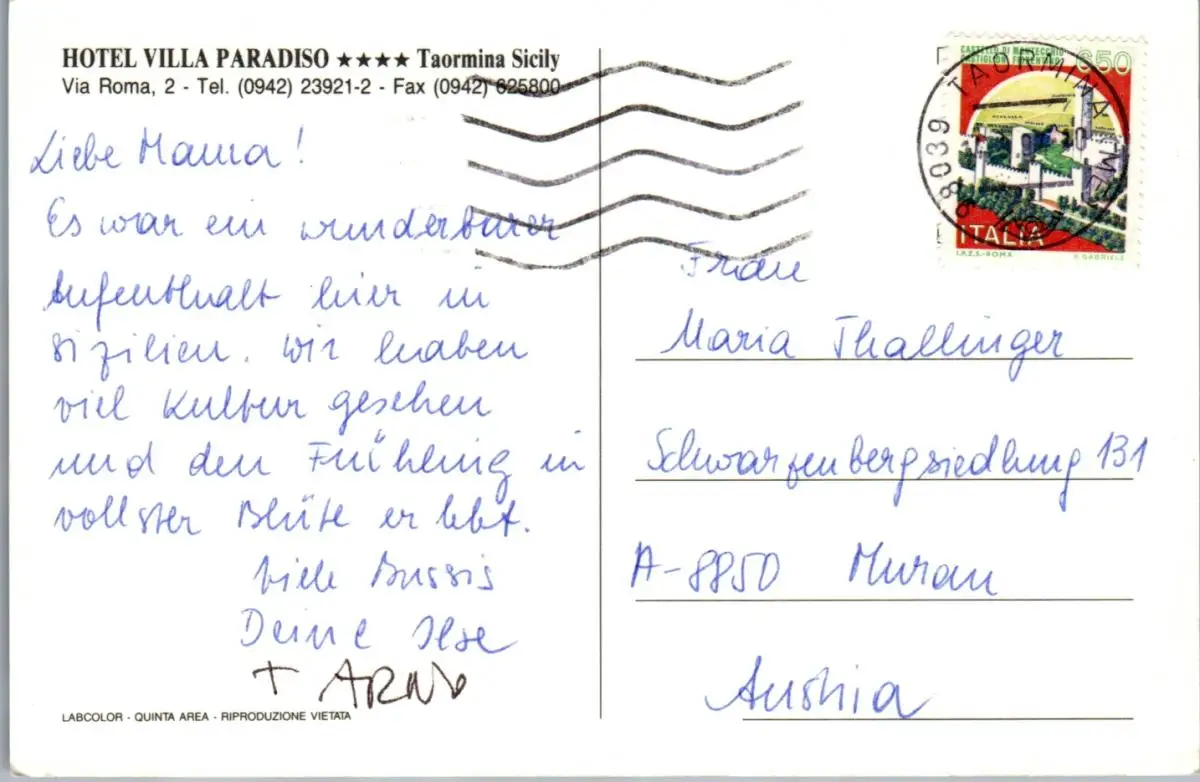 HOTEL VILLA PARADISO ★★★★ Taormina Sicily
Via Roma, 2 - Tel. (0942) 23921-2 - Fax (0942) 625800
Liebe Mama!
Es war ein wunderbarer
Aufenthalt hier in
Sizilien. Wir haben
viel Kultur gesehen
und den Frühling in
vollster Blüte erlebt.
Viele Bussis
Deine Ilse
+ ARNO
LABCOLOR - QUINTA AREA - RIPRODUZIONE VIETATA
CASTELLO DI MONTECCHIO
CASTIGLION FIORENTINO
650
ITALIA
I.P.Z.S.-ROMA
98039 TAORMINA ME
Frau
Maria Thallinger
Schwarzenbergsiedlung 131
A-8850 Murau
Austria